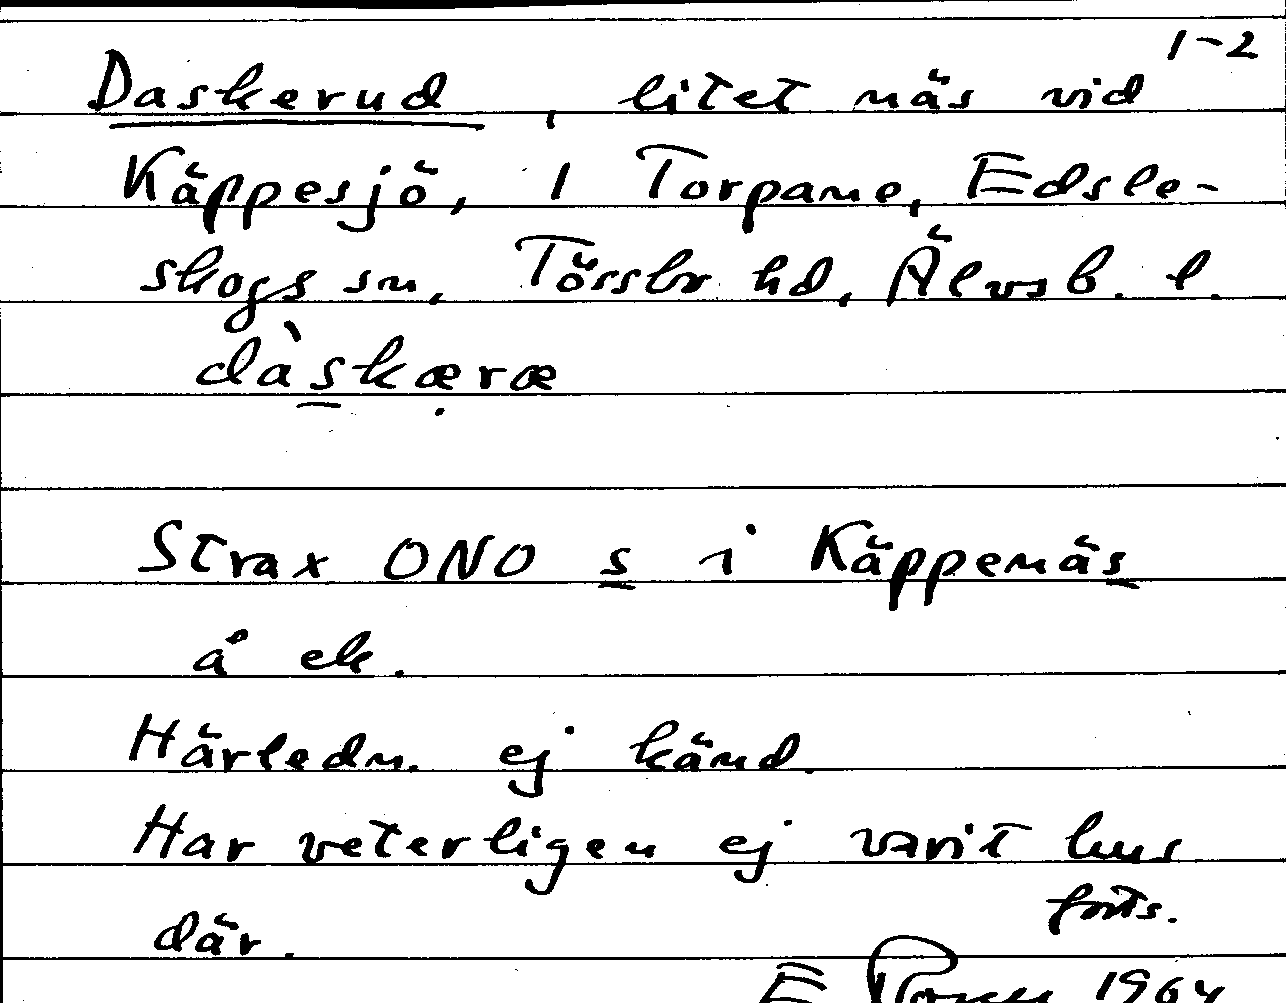 1-2
Daskerud, litet näs vid
Käppesjö, 1 Torpane, Edsle-
skogs sn, Tössbo hd, Älvsb. l.
dàskæræ
Strax ONO s i Käppenäs
å ek.
Härledn. ej känd.
Har veterligen ej varit hus
där.
forts.
E 1964